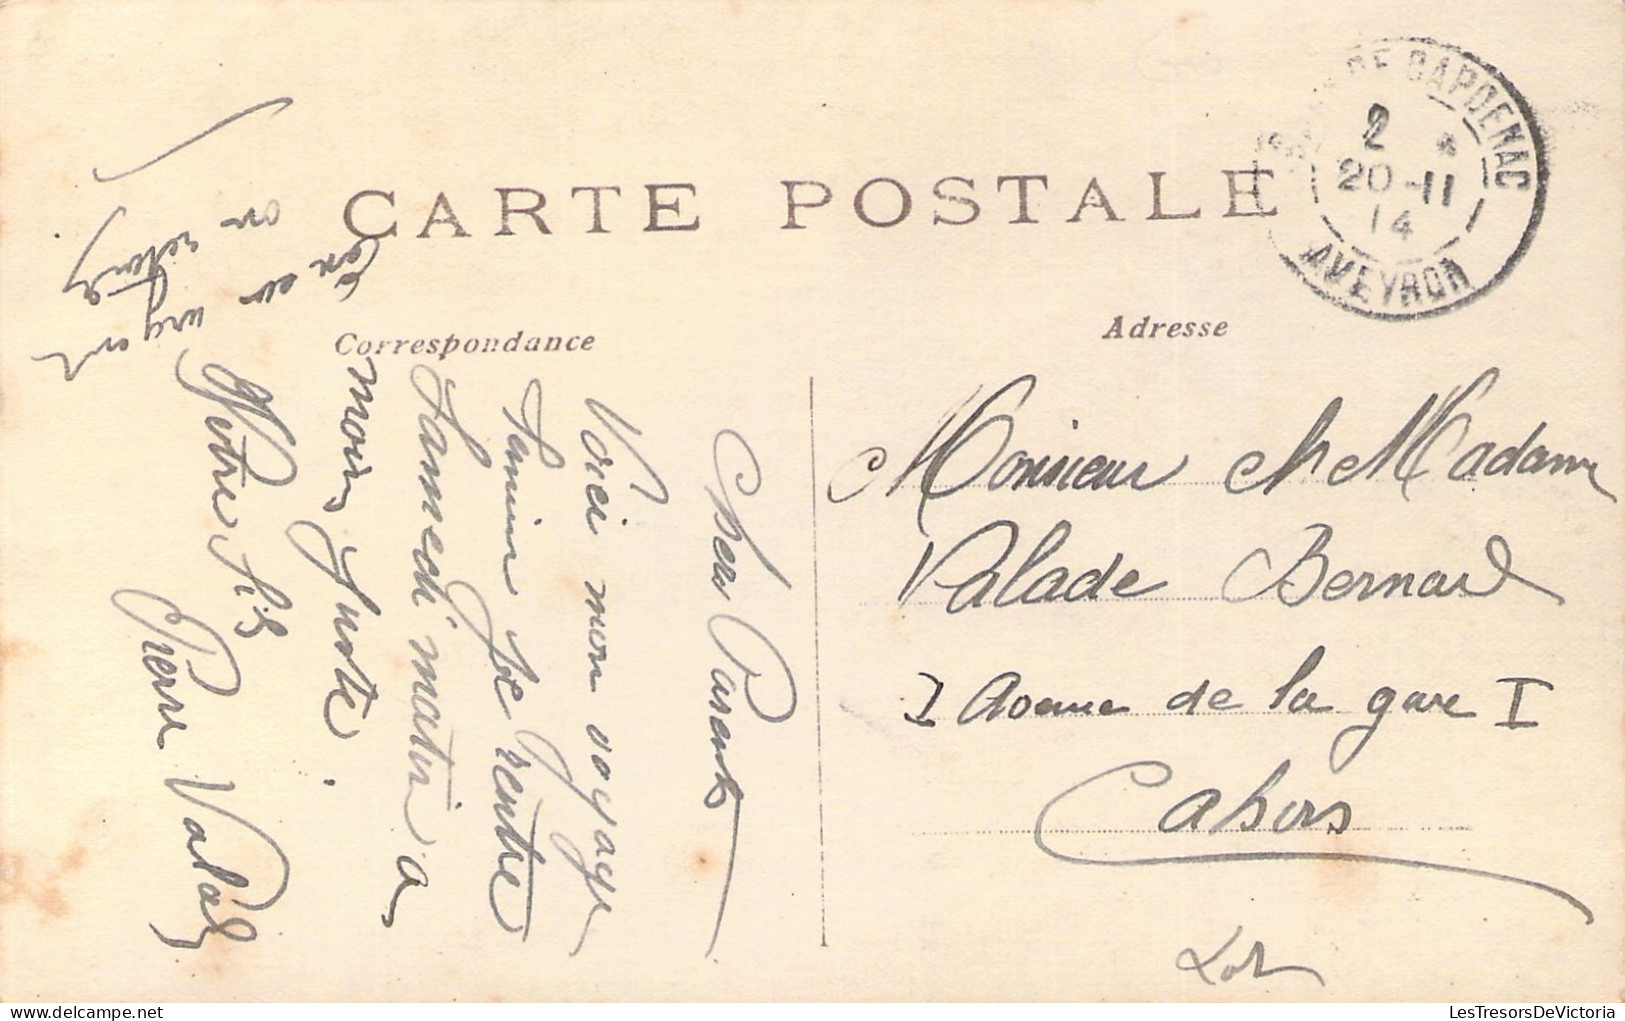 CARTE POSTALE
GARE DE CAPDENAC
2 *
20-11
14
AVEYRON
Correspondance
Adresse
Monsieur et Madame
Valade Bernard
I Avenue de la gare I
Cahors
Lot
Chers Parents
Voici mon voyage
je rentre
Samedi matin a
moin juste.
Votre fils
Pierre Valade
LesTresorsDeVictoria.com